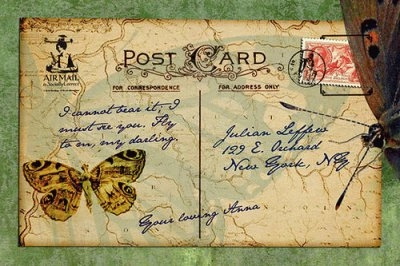 POST CARD
AIR MAIL
FOR CORRESPONDENCE
FOR ADDRESS ONLY
I cannot bear it, I
must see you. Fly
to me, my darling.
Your loving Anna
Julian Leffew
129 E. Orchard
New York, NY